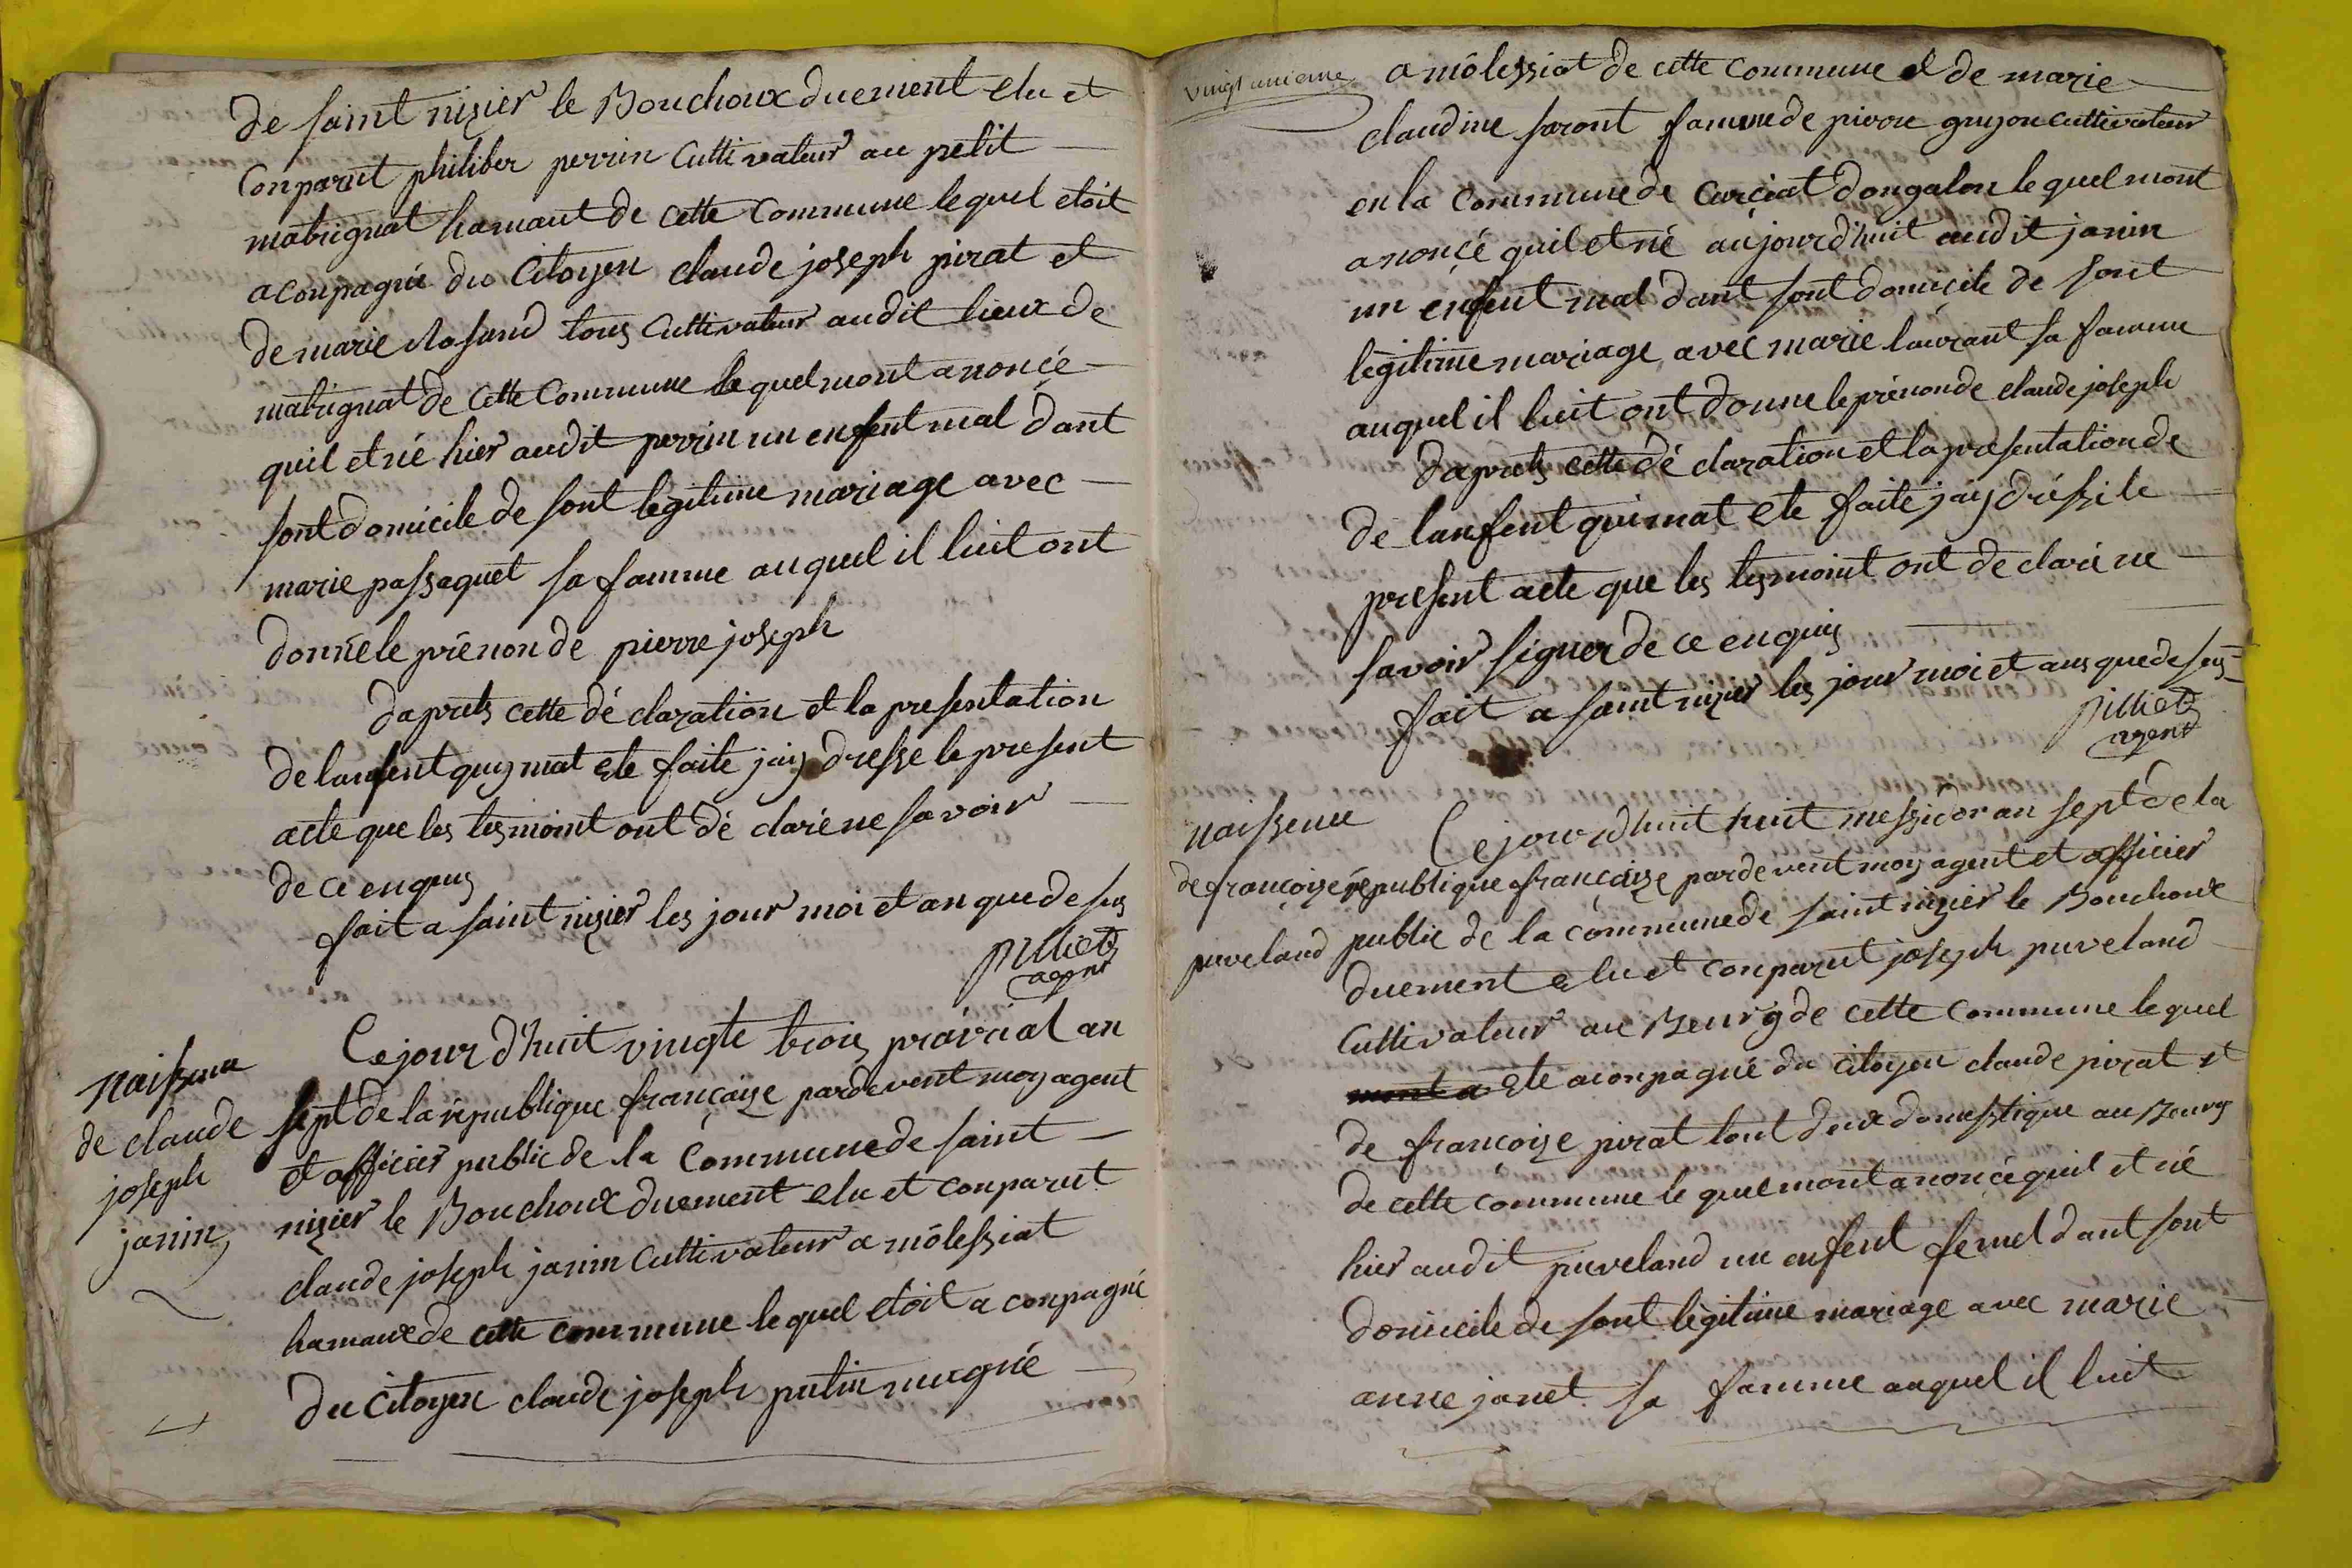 de saint nizier le Bouchoux duement elu et
Conparut philiber perrin Cultivateur au petit
matrignat hamaut de cette Commune lequel etoit
aconpagné du Citoyen claude joseph pirat et
de marie tous Cultivateur audit lieux de
matrignat de cette Commune lequel mont anoncé
quil et né hier audit perrin un enfent mal dant
sont domicile de sont legitime mariage avec
marie passaquet sa famme auquel il luit ont
donné le prénon de pierre joseph
daprets cette dé claration et la presentation
de lanfent quy mat ete faite jaiy dresse le present
acte que les tesmoint ont dé claré ne savoir
de ce enquis
fait a saint nizier les jour moi et an que de sus
pilliet
agent
naissance
de claude
joseph
janin
Cejourd'huit vingte trois prairial an
sept de la république françaize pardevent moy agent
et officier public de la Commune de saint
nizier le Bouchoux duement elu et conparut
claude joseph janin Cultivateur a môlessiat
hamaux de cette commune lequel etoit a conpagné
du Citoyen claude joseph putin mugné
vingt unieme
a môlessiat de cette Commune et de marie
claudine famme de pirre guyon cultivateur
en la Commune de Curciat dongalon lequel mont
anoncé quil et né aujourdhuit audit janin
un enfent mal dant sont domicile de sont
légitime mariage avec marie laurant sa famme
auquel il luit ont donne le prénon de claude joseph
daprets cette dé claration et la presentation de
de lanfent qui mat ete faite jaiy dréssé le
present acte que les tesmoint ont declaré ne
savoir signer de ce enquis
fait a saint nizier les jour moi et ans que de sus
pilliet
agent
naissence
de françoize
puveland
Cejourdhuit huit messidor an sept de la
république françaize pardevent moy agent et officier
public de la commune de saint nizier le Bouchoux
duement elu et conparut joseph puveland
Cultivateur au Bourg de cette Commune lequel
ete aconpagné du Citoyen claude pirat et
de françoize pirat tout deux domestique au Bourg
de cette commune le quel mont anoncé quil et né
hier audit puveland un enfent femel dant sont
domicile de sont légitime mariage avec marie
anne janet sa famme auquel il luit